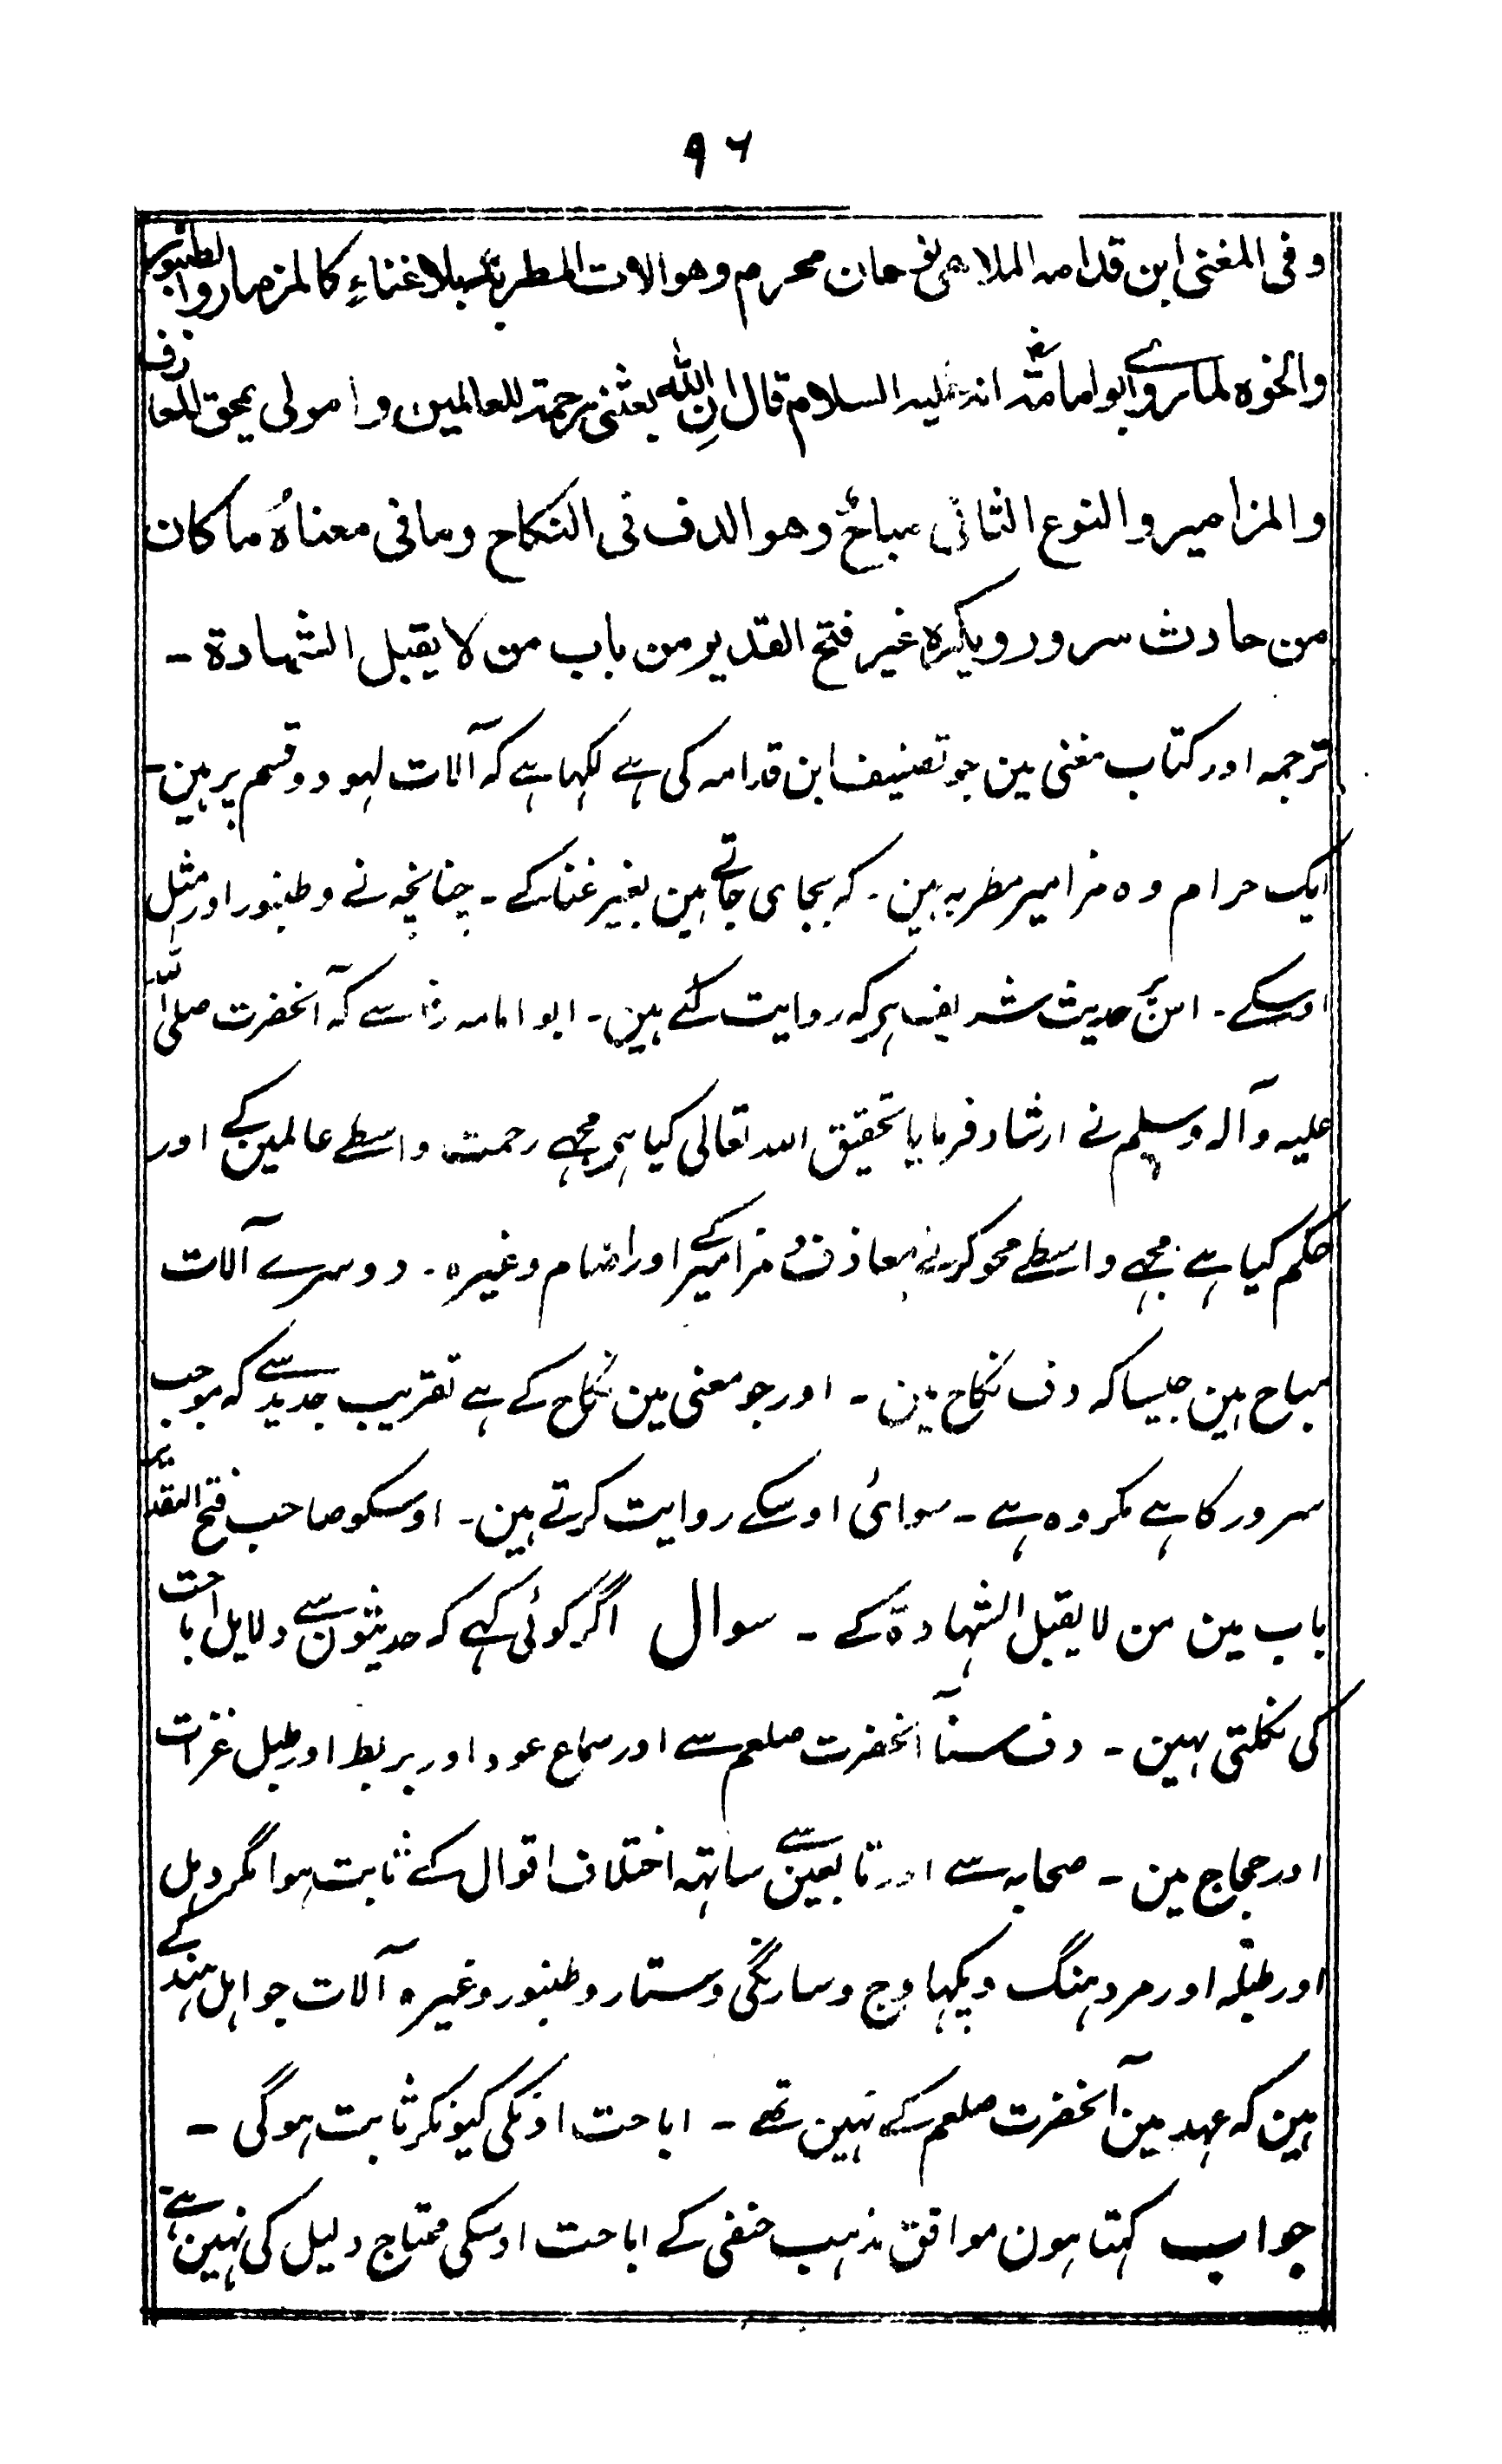 ۹۶
وفی المغنی ابن قدامہ الملاھی نوعان محرم وھو الات المطربۃ بلا غناءِ کالمزمار والطنبور
والخوہ لما روی ابو امامۃؓ انہ علیہ السلام قال ان اللہ بعثنی رحمۃ للعالمین وامرلی بمحق المعازف
والمزامیر والنوع الثانی مباحٌ وھو الدف فی النکاح وما فی معناہُ ما کان
من حادث سرور ویکرہ غیر فتح القدیر من باب من لا یقبل الشہادۃ -
ترجمہ اور کتاب مغنی مین جو تصنیف ابن قدامہ کی ہے لکہا ہے کہ آلات لہو دو قسم پر ہین-
ایک حرام وہ مزامیر مطربہ ہین۔ کہ بجای جاتے ہین بغیر غنا کے - چنانچہ نے و طنبور اور مثل
اوسکے۔ اس پر حدیث شریف ہر کہ روایت کئے ہین۔ ابو امامہ رض سے کہ آنحضرت صلی اللہ
علیہ وآلہ وسلم نے ارشاد فرمایا تحقیق اللہ تعالی کیا ہر مجہے رحمت واسطے عالمین کے اور
حکم کیا ہے مجہے واسطے محو کرنے معاذف و مزامیر کے اور اصنام وغیرہ۔ دوسرے آلات
مباح ہین جیسا کہ دف نکاح مین - اور جو معنی مین نکاح کے ہے تقریب جدید سے کہ موجب
سرور کا ہے مکروہ ہے - سوائ اوسکے روایت کرتے ہین۔ اوسکو صاحب فتح القدیر
باب مین من لا یقبل الشہادۃ کے - سوال اگر کوئی کہے کہ حدیثون سے دلایل اباحت
کی نکلتی ہین - دف سننا آنحضرت صلعم سے اور سماع عود اور بربط اور طبل غزات
اور حجاج مین - صحابہ سے اور تابعین سے ساتہہ اختلاف اقوال کے ثابت ہوا مگر دہل
اور طبلہ اور مردہنگ و پکہاوج و سارنگی و ستار و طنبور وغیرہ آلات جو اہل ہند کے
ہین کہ عہد مین آنحضرت صلعم کے نہین تھے - اباحت اونکی کیونکر ثابت ہوگی -
جواب کہتا ہون موافق مذہب حنفی کے اباحت اوسکی محتاج دلیل کی نہین ہے